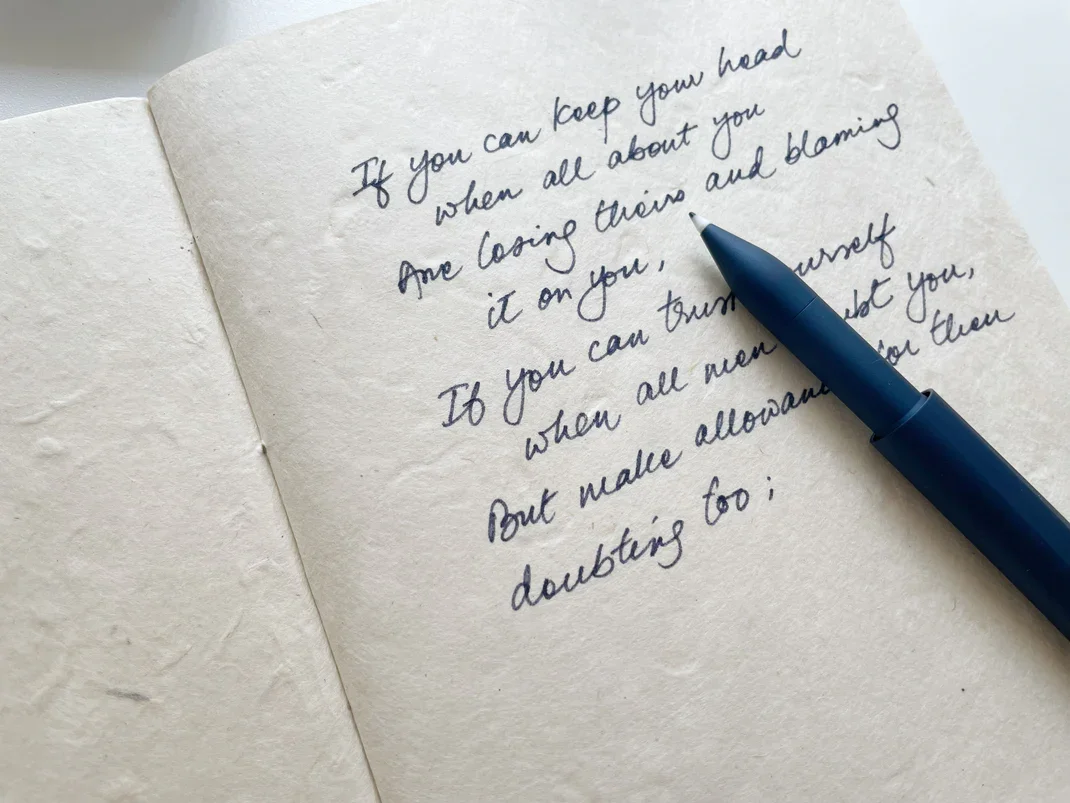 If you can keep your head
when all about you
Are losing theirs and blaming
it on you,
If you can trus urself
when all men ubt you,
But make allowanc for their
doubting too;